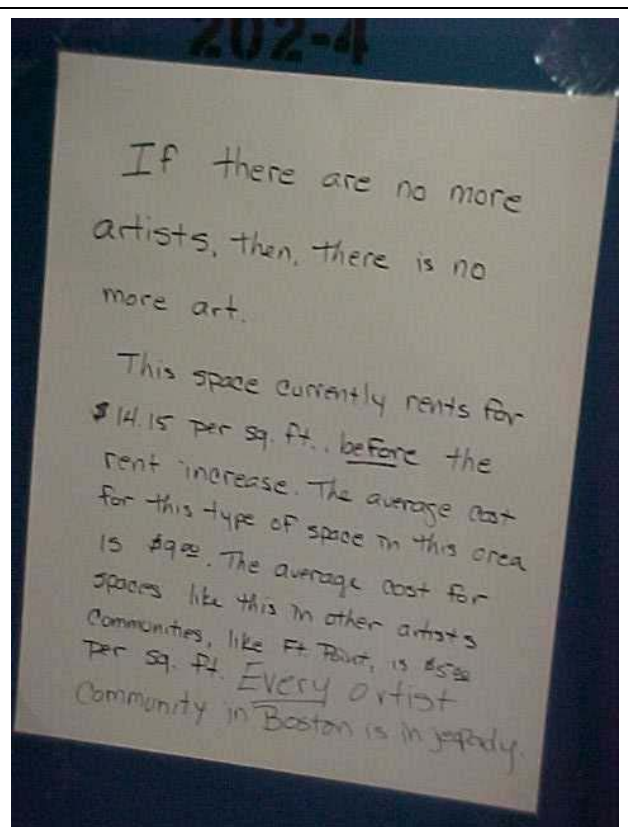 202-4
If there are no more
artists, then, there is no
more art.
This space currently rents for
$14.15 per sq. ft., before the
rent increase. The average cost
for this type of space in this area
is $9.00. The average cost for
spaces like this in other artists
Communities, like Ft. Point, is $5.00
per sq. ft. Every artist
Community in Boston is in jepardy.